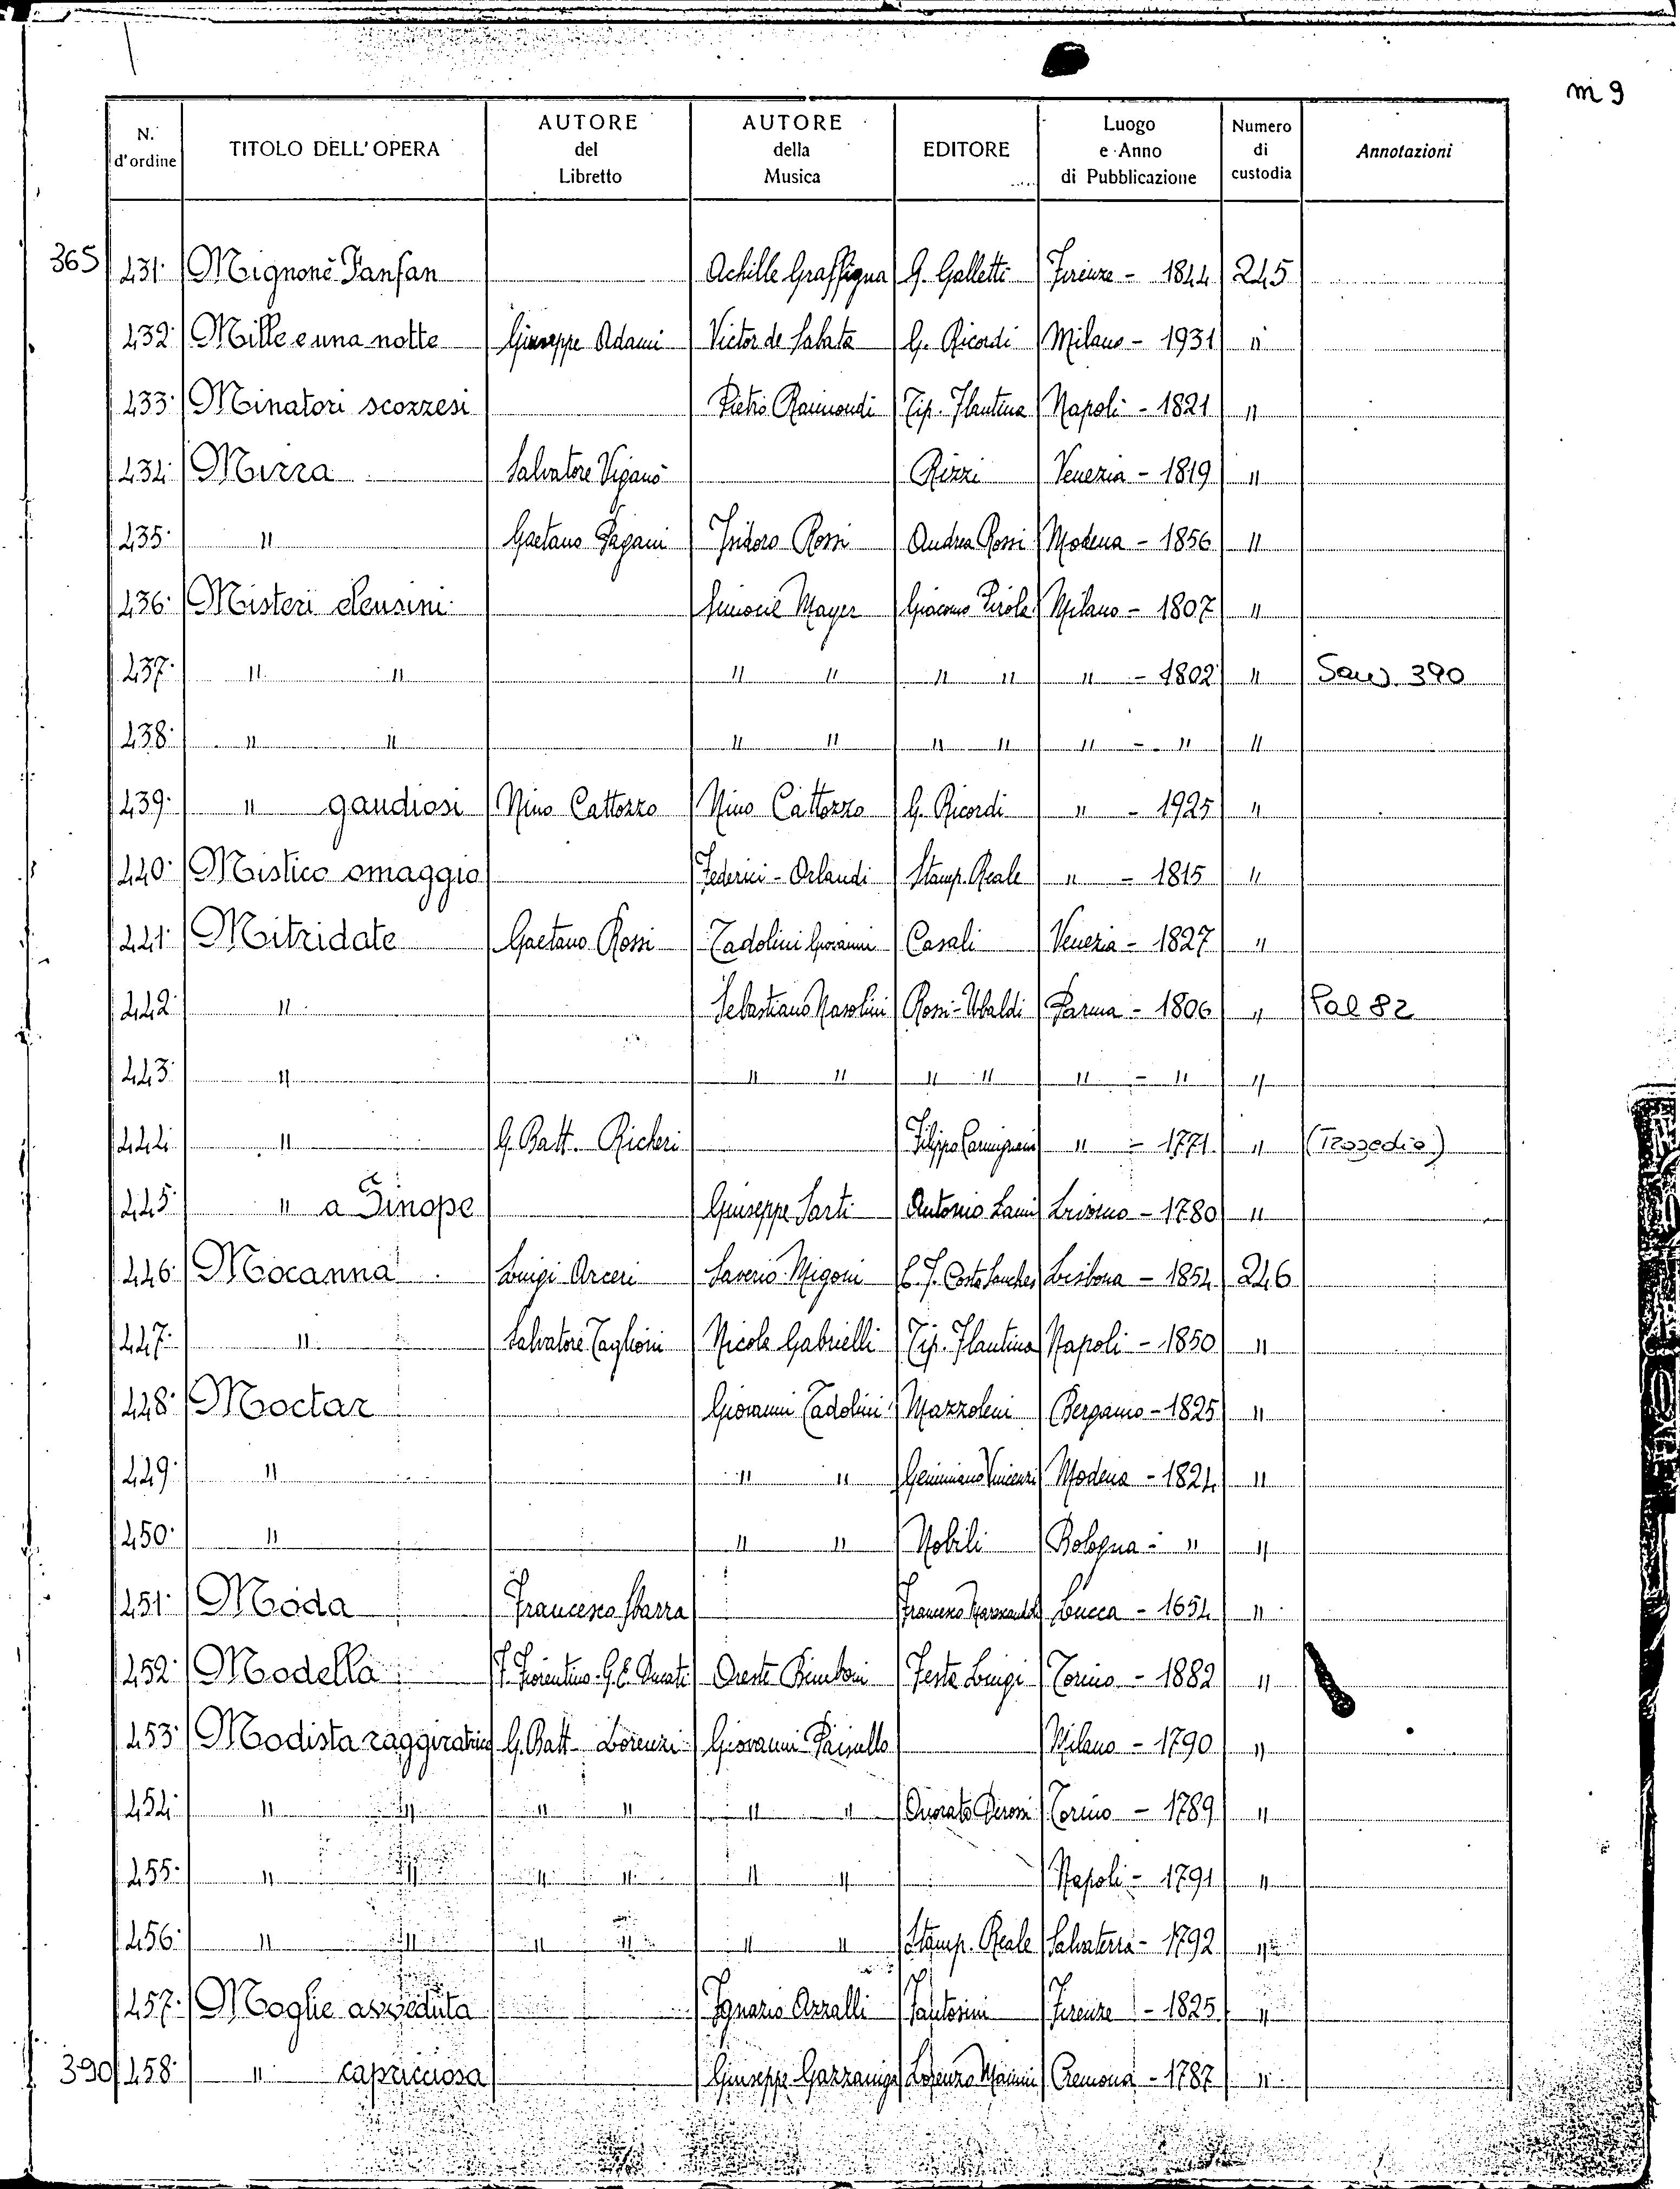 m 9
N. d'ordine TITOLO DELL'OPERA AUTORE del Libretto AUTORE della Musica EDITORE Luogo e Anno di Pubblicazione Numero di custodia Annotazioni
365 431. Mignonè Fanfan Achille Graffigna G. Galletti Firenze - 1844 245
432. Mille e una notte Giuseppe Adami Victor de Sabata G. Ricordi Milano - 1931 "
433. Minatori scozzesi Pietro Raimondi Tip. Flautina Napoli - 1821 "
434. Mirra Salvatore Viganò Rizzi Venezia - 1819 "
435. " Gaetano Pagani Isidoro Rossi Andrea Rossi Modena - 1856 "
436. Misteri eleusini Simone Mayer Giacomo Pirola Milano - 1807 "
437. " " " " " " " - 1802 " 390
438. " " " " " " " - " "
439. " gaudiosi Nino Cattozzo Nino Cattozzo G. Ricordi " - 1925 "
440. Mistico omaggio Federici - Orlandi Stamp. Reale " - 1815 "
441. Mitridate Gaetano Rossi Tadolini Giovanni Casali Venezia - 1827 "
442. " Sebastiano Nasolini Rossi-Ubaldi Parma - 1806 " Pal 82
443. " " " " " " - " "
444. " G. Batt. Richeri Filippo Carmignani " - 1771 " (Tragedia)
445. " a Sinope Giuseppe Sarti Antonio Lami Livorno - 1780 "
446. Mocanna Luigi Arceri Saverio Migoni Costa Sanches Lisbona - 1854 246
447. " Salvatore Taglioni Nicola Gabrielli Tip. Flautina Napoli - 1850 "
448. Moctar Giovanni Tadolini Mazzoleni Bergamo - 1825 "
449. " " " Geminiano Vincenzi Modena - 1824 "
450. " " " Nobili Bologna - " "
451. Moda Francesco Sbarra Francesco Lucca - 1654 "
452. Modella F. Fiorentino - G. E. Ducati Oreste Bimboni Festa Luigi Torino - 1882 "
453. Modista raggiratrice G. Batt. Lorenzi Giovanni Paisiello Milano - 1790 "
454. " " " " " " Onorato Derossi Torino - 1789 "
455. " " " " " " Napoli - 1791 "
456. " " " " " " Stamp. Reale Salvaterra - 1792 "
457. Moglie avveduta Ignazio Azzalli Fantosini Firenze - 1825 "
390 458. " capricciosa Giuseppe Gazzaniga Lorenzo Manini Cremona - 1787 "